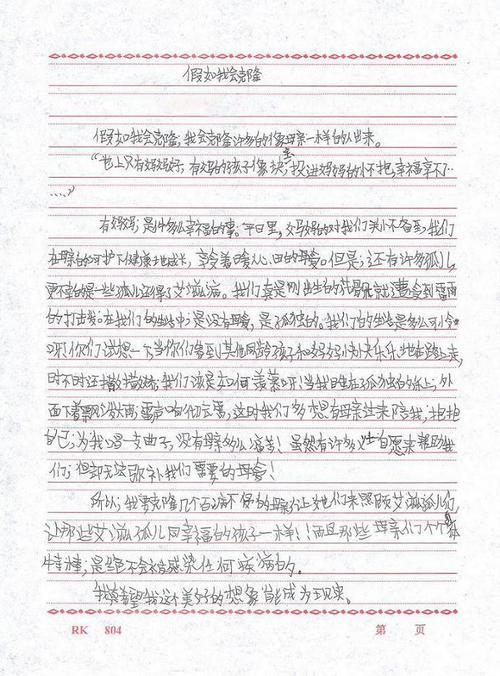 假如我会克隆
假如我会克隆，我会克隆许多的像母亲一样的人出来。
“世上只有妈妈好，有妈的孩子像块宝，投进妈妈的怀抱，幸福享不了…
……”
有妈妈，是件幸福的事。平日里，妈妈的对我们关心不备至，我们
在母亲的呵护下健康地成长，享受着暖人心田的母爱。但是，还有许多孤儿，
更不幸的是一些孤儿还得了艾滋病。我们真是刚出生的就遭受到雷雨
的打击。在我们的生活中，是没有母爱，是孤独的。我们的生活是多么可怜
呀！你们试想一下当你们看到其他同龄孩子和妈妈快快乐乐地在路上走，
时不时还，我们该是如何羡慕呀！当我自坐在孤独的床上，外
面下着飘泼大雨，雷声响彻云霄，这时我们多想有母亲过来陪我，抱抱
自己，为我唱一支曲子，没有母亲多么痛苦！虽然有许多自愿来帮助我
们，但却无法弥补我们需要的母爱！
所以，我要克隆几个百病不侵的母亲，让她们来照顾艾滋孤儿们，
让那些艾滋孤儿同幸福的孩子一样！而且那些母亲们个个
，是绝不会被感染任何疾病的。
我真希望我这个美好的想象能成为现实。
RK 804 第 页